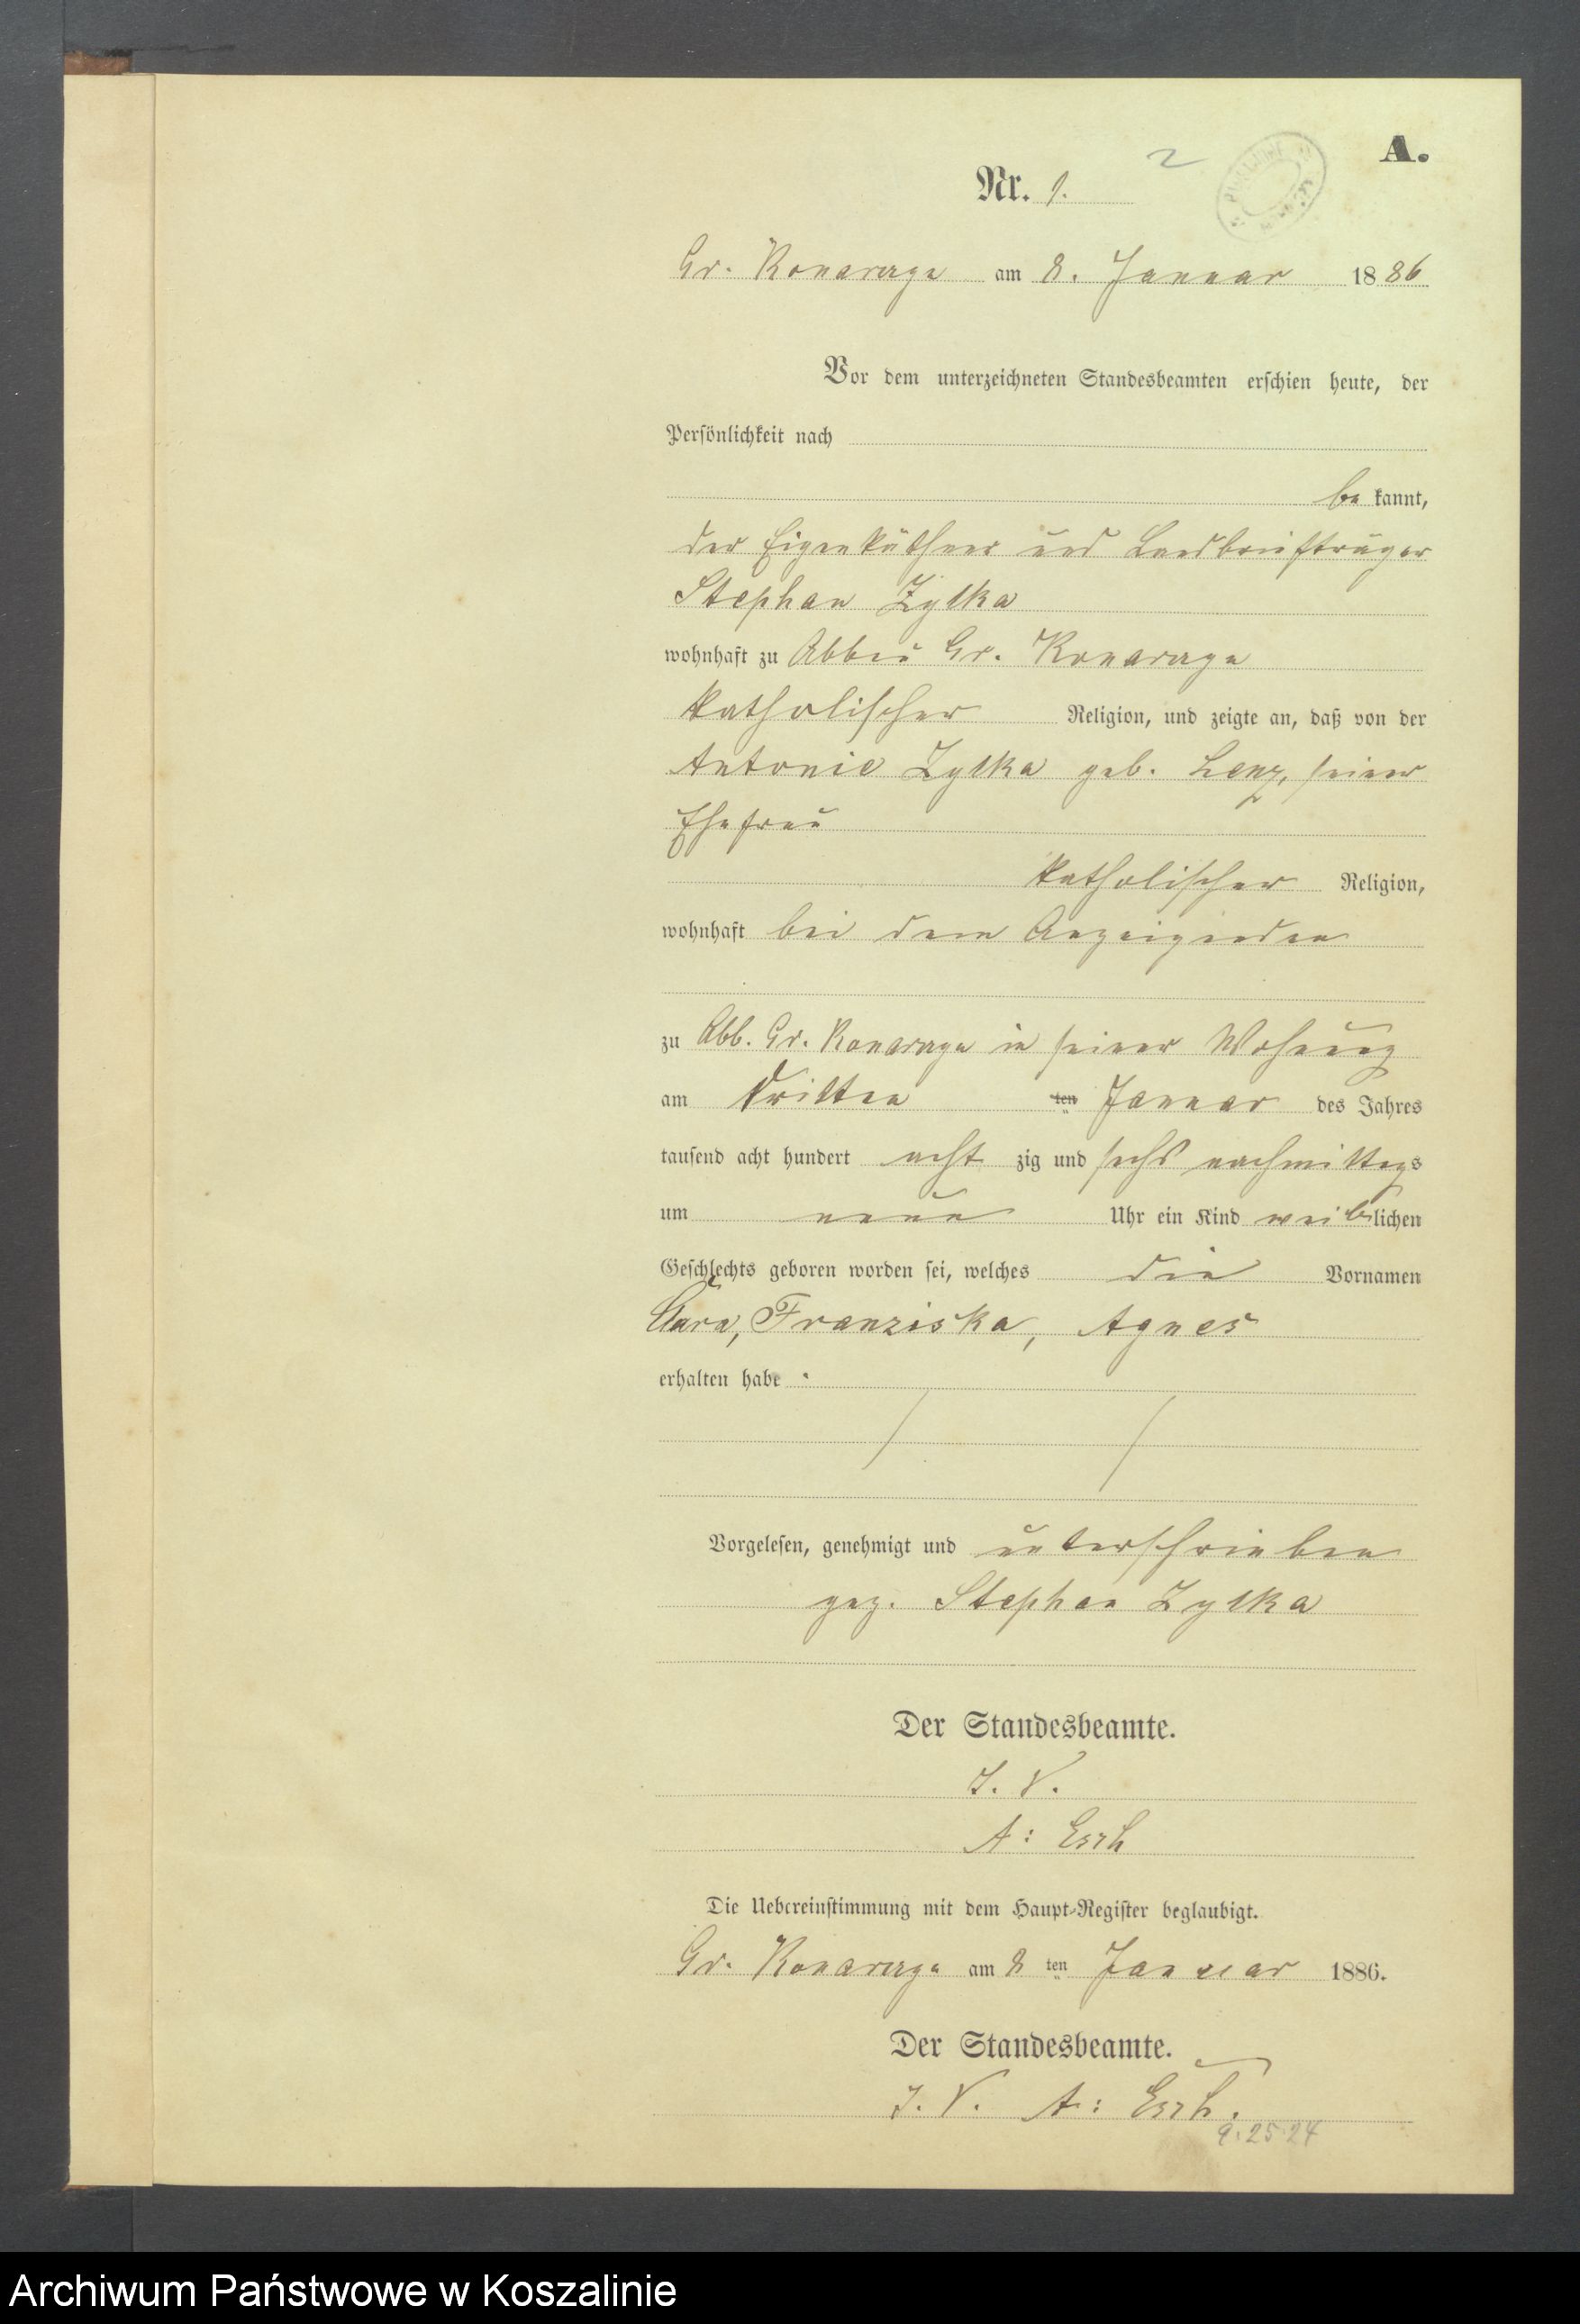 2
A.
Nr. 1.
Gr. Konarczyn am 8. Januar 1886
Vor dem unterzeichneten Standesbeamten erschien heute, der
Persönlichkeit nach
be kannt,
der Eigenkäthner und Landbriefträger
Stephan Zylka
wohnhaft zu Abbau Gr. Konarczyn
katholischer Religion, und zeigte an, daß von der
Antonie Zylka geb. Lenz, seiner
Ehefrau
katholischer Religion,
wohnhaft bei dem Anzeigenden
zu Abb. Gr. Konarczyn in seiner Wohnung
am dritten ten Januar des Jahres
tausend acht hundert acht zig und sechs nachmittags
um neun Uhr ein Kind weiblichen
Geschlechts geboren worden sei, welches die Vornamen
Clara, Franziska, Agnes
erhalten habe.
Vorgelesen, genehmigt und unterschrieben
gez. Stephan Zylka
Der Standesbeamte.
J. V.
A:
Die Uebereinstimmung mit dem Haupt-Register beglaubigt.
Gr. Konarczyn am 8 ten Januar 1886.
Der Standesbeamte.
J. V. A:
9.25.24
Archiwum Państwowe w Koszalinie